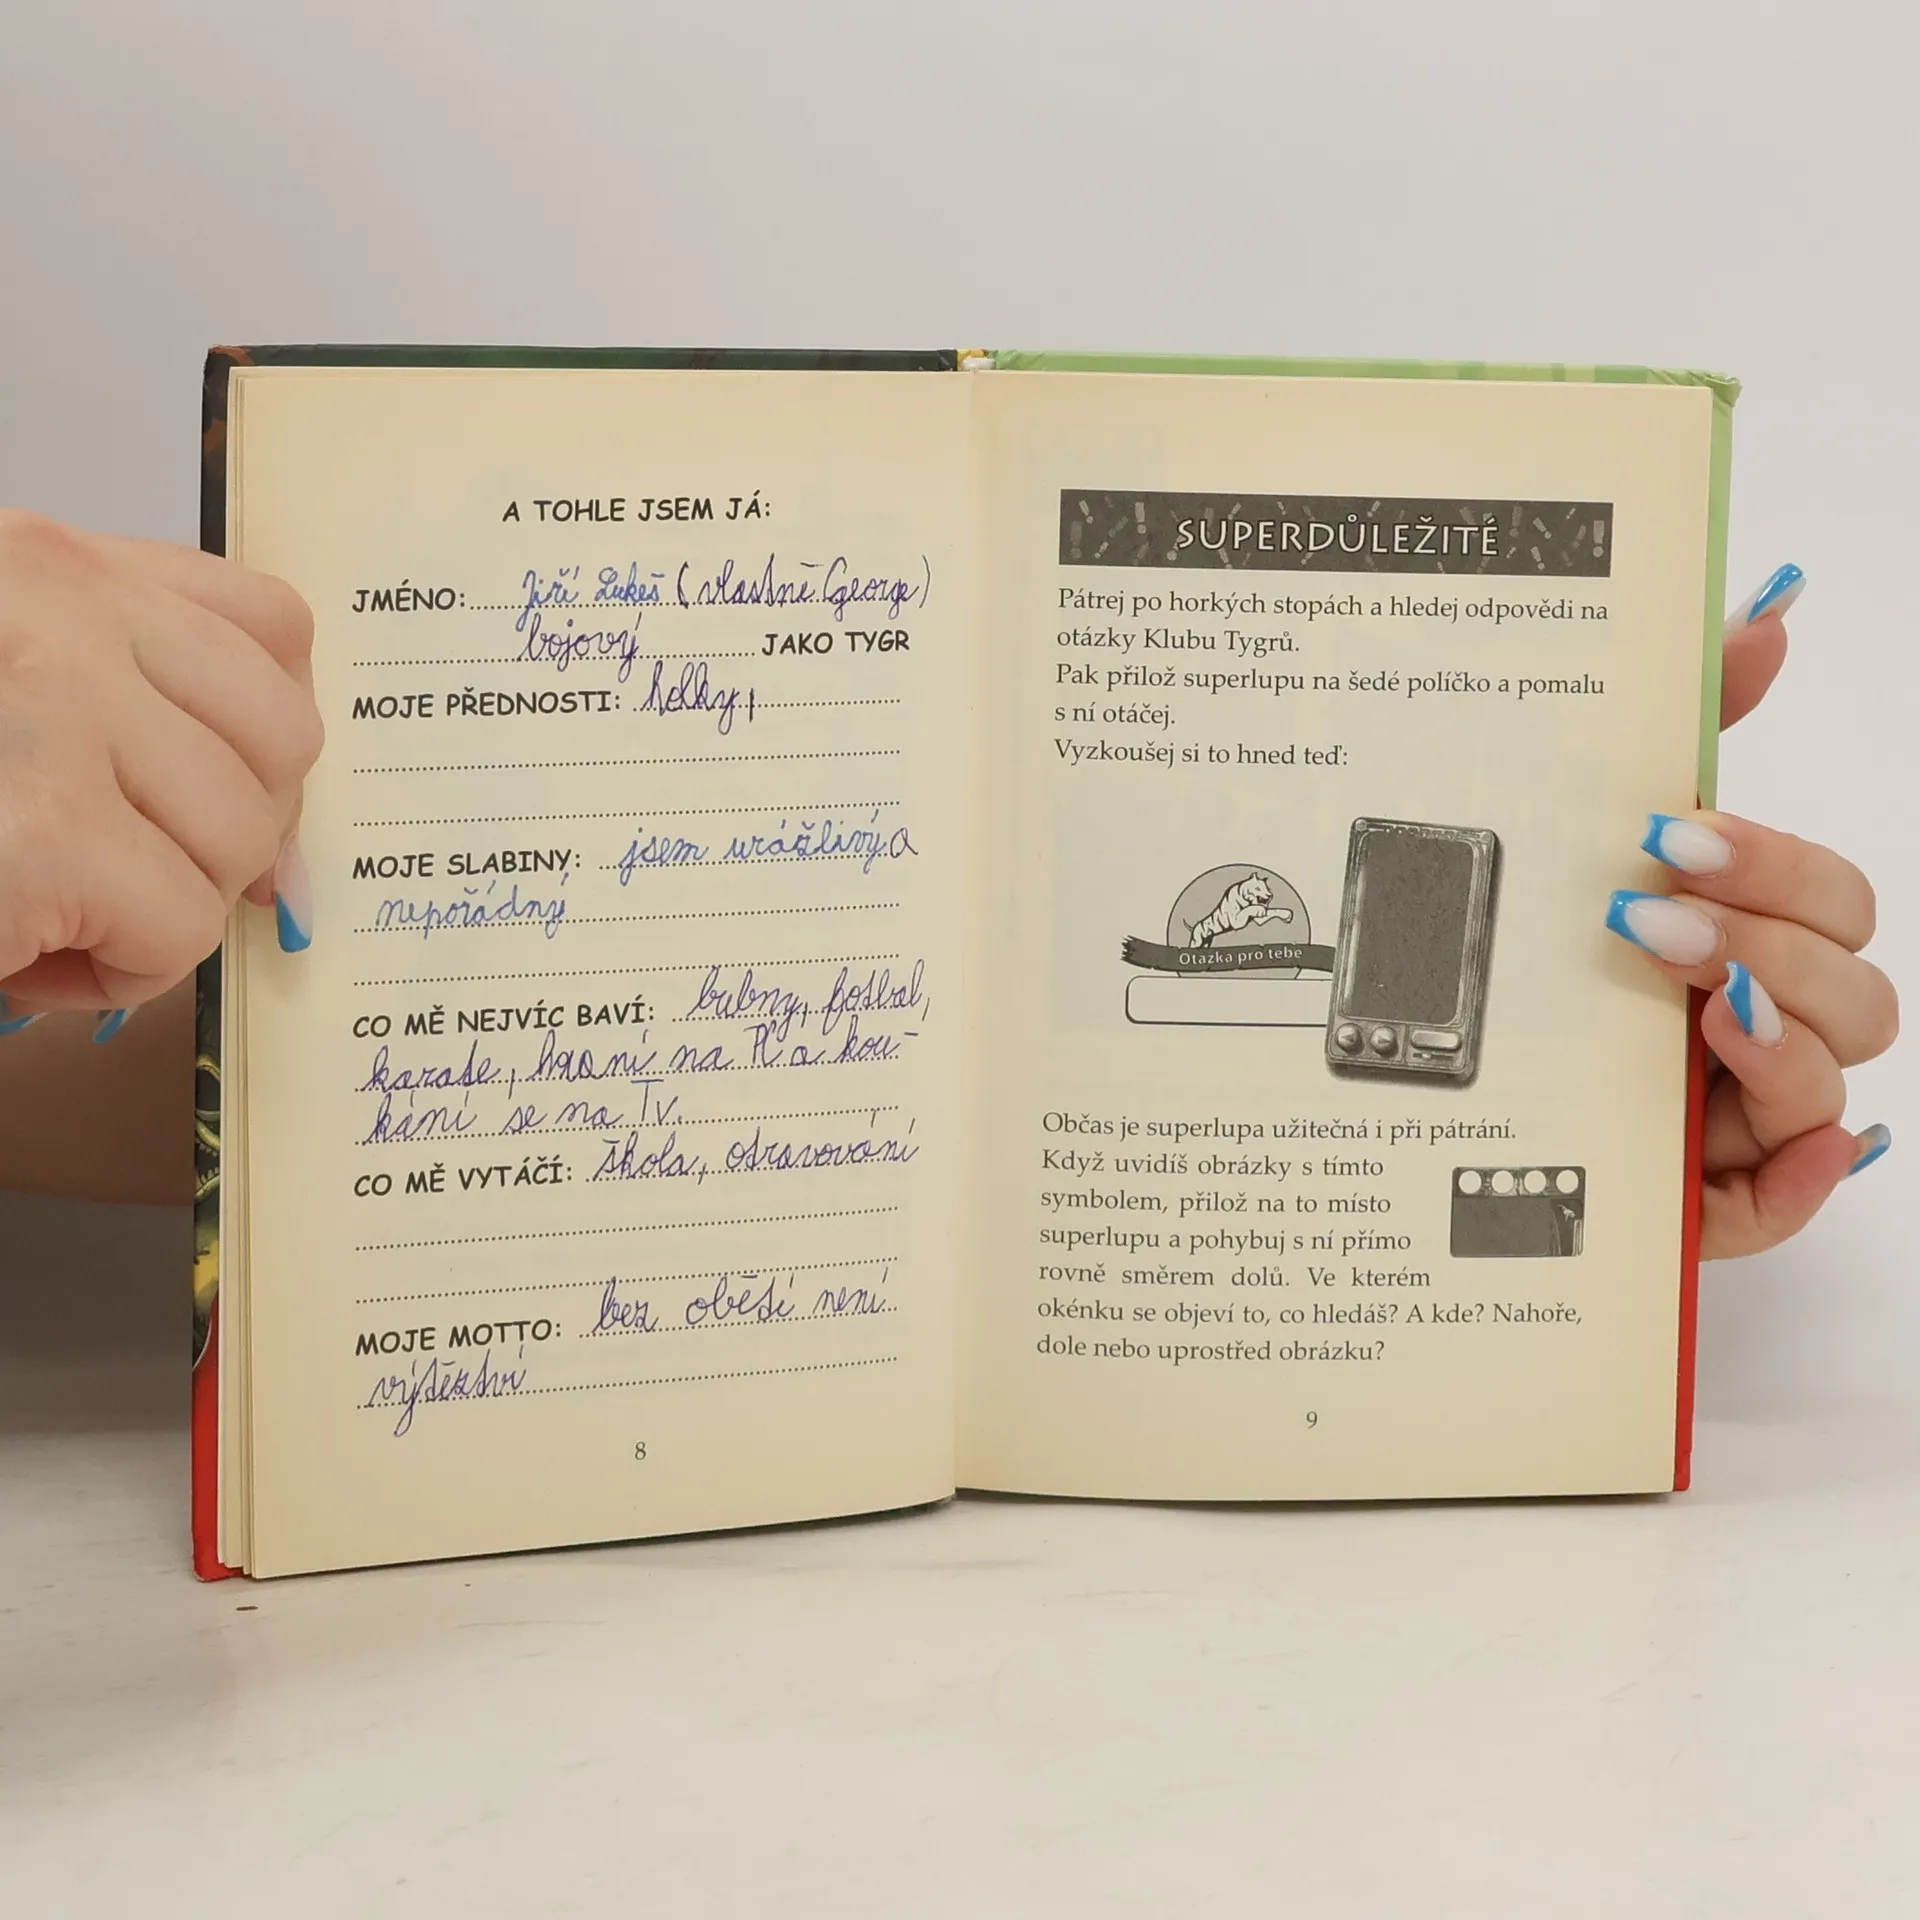 A TOHLE JSEM JÁ:
JMÉNO: Jiří Lukeš (vlastně George)
bojový JAKO TYGR
MOJE PŘEDNOSTI: holky,
MOJE SLABINY: jsem urážlivý a
nepořádný
CO MĚ NEJVÍC BAVÍ: bubny, fotbal,
karate, hraní na PC a kou-
kání se na Tv.
CO MĚ VYTÁČÍ: škola, otravování
MOJE MOTTO: bez obětí není
výtězství
8
SUPERDŮLEŽITÉ
Pátrej po horkých stopách a hledej odpovědi na
otázky Klubu Tygrů.
Pak přilož superlupu na šedé políčko a pomalu
s ní otáčej.
Vyzkoušej si to hned teď:
Otázka pro tebe
Občas je superlupa užitečná i při pátrání.
Když uvidíš obrázky s tímto
symbolem, přilož na to místo
superlupu a pohybuj s ní přímo
rovně směrem dolů. Ve kterém
okénku se objeví to, co hledáš? A kde? Nahoře,
dole nebo uprostřed obrázku?
9